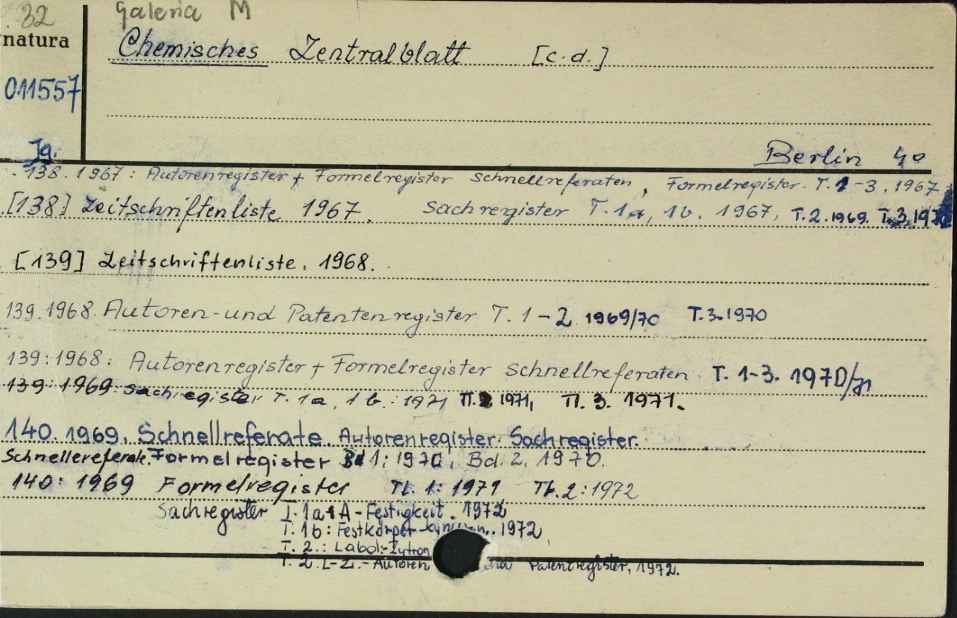 32 Galeria M
natura
Chemisches Zentralblatt [c.d.]
011557
Jg. Berlin 4°
138. 1967: Autorenregister + Formelregister Schnellreferaten, Formelregister. T. 1-3, 1967
[138] Zeitschriftenliste 1967. Sachregister T. 1a, 1b. 1967, T. 2. 1969. T. 3.
[139] Zeitschriftenliste. 1968.
139. 1968. Autoren- und Patentenregister T. 1-2 1969/70 T. 3. 1970
139: 1968: Autorenregister + Formelregister Schnellreferaten. T. 1-3. 1970/71
139: 1969 Sachregister T. 1a, 1b.: 1971 1971, Tl. 3. 1971.
140. 1969. Schnellreferate. Autorenregister. Sachregister.
Formelregister Bd 1: 1970, Bd. 2, 1970.
140: 1969 Formelregister Tl. 1: 1971 Tl. 2: 1972
Sachregister T. 1a: A-Festigkeit. 1972
T. 1b: Festkörper 1972
T. 2.:
T. 2 L-Z.- Autoren Patentregister, 1972.